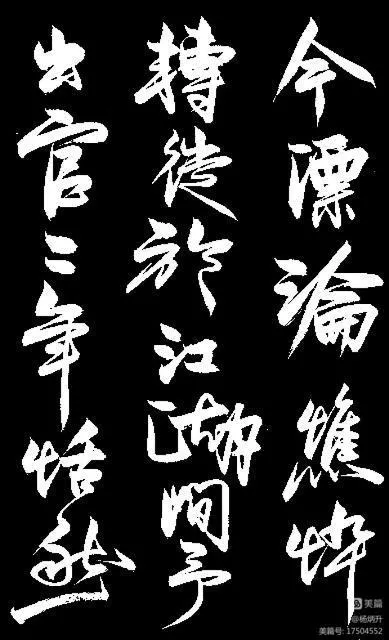 今漂淪憔悴
轉徙於江湖間予
出官二年恬然
美篇
@杨炳升
美篇号: 17504552